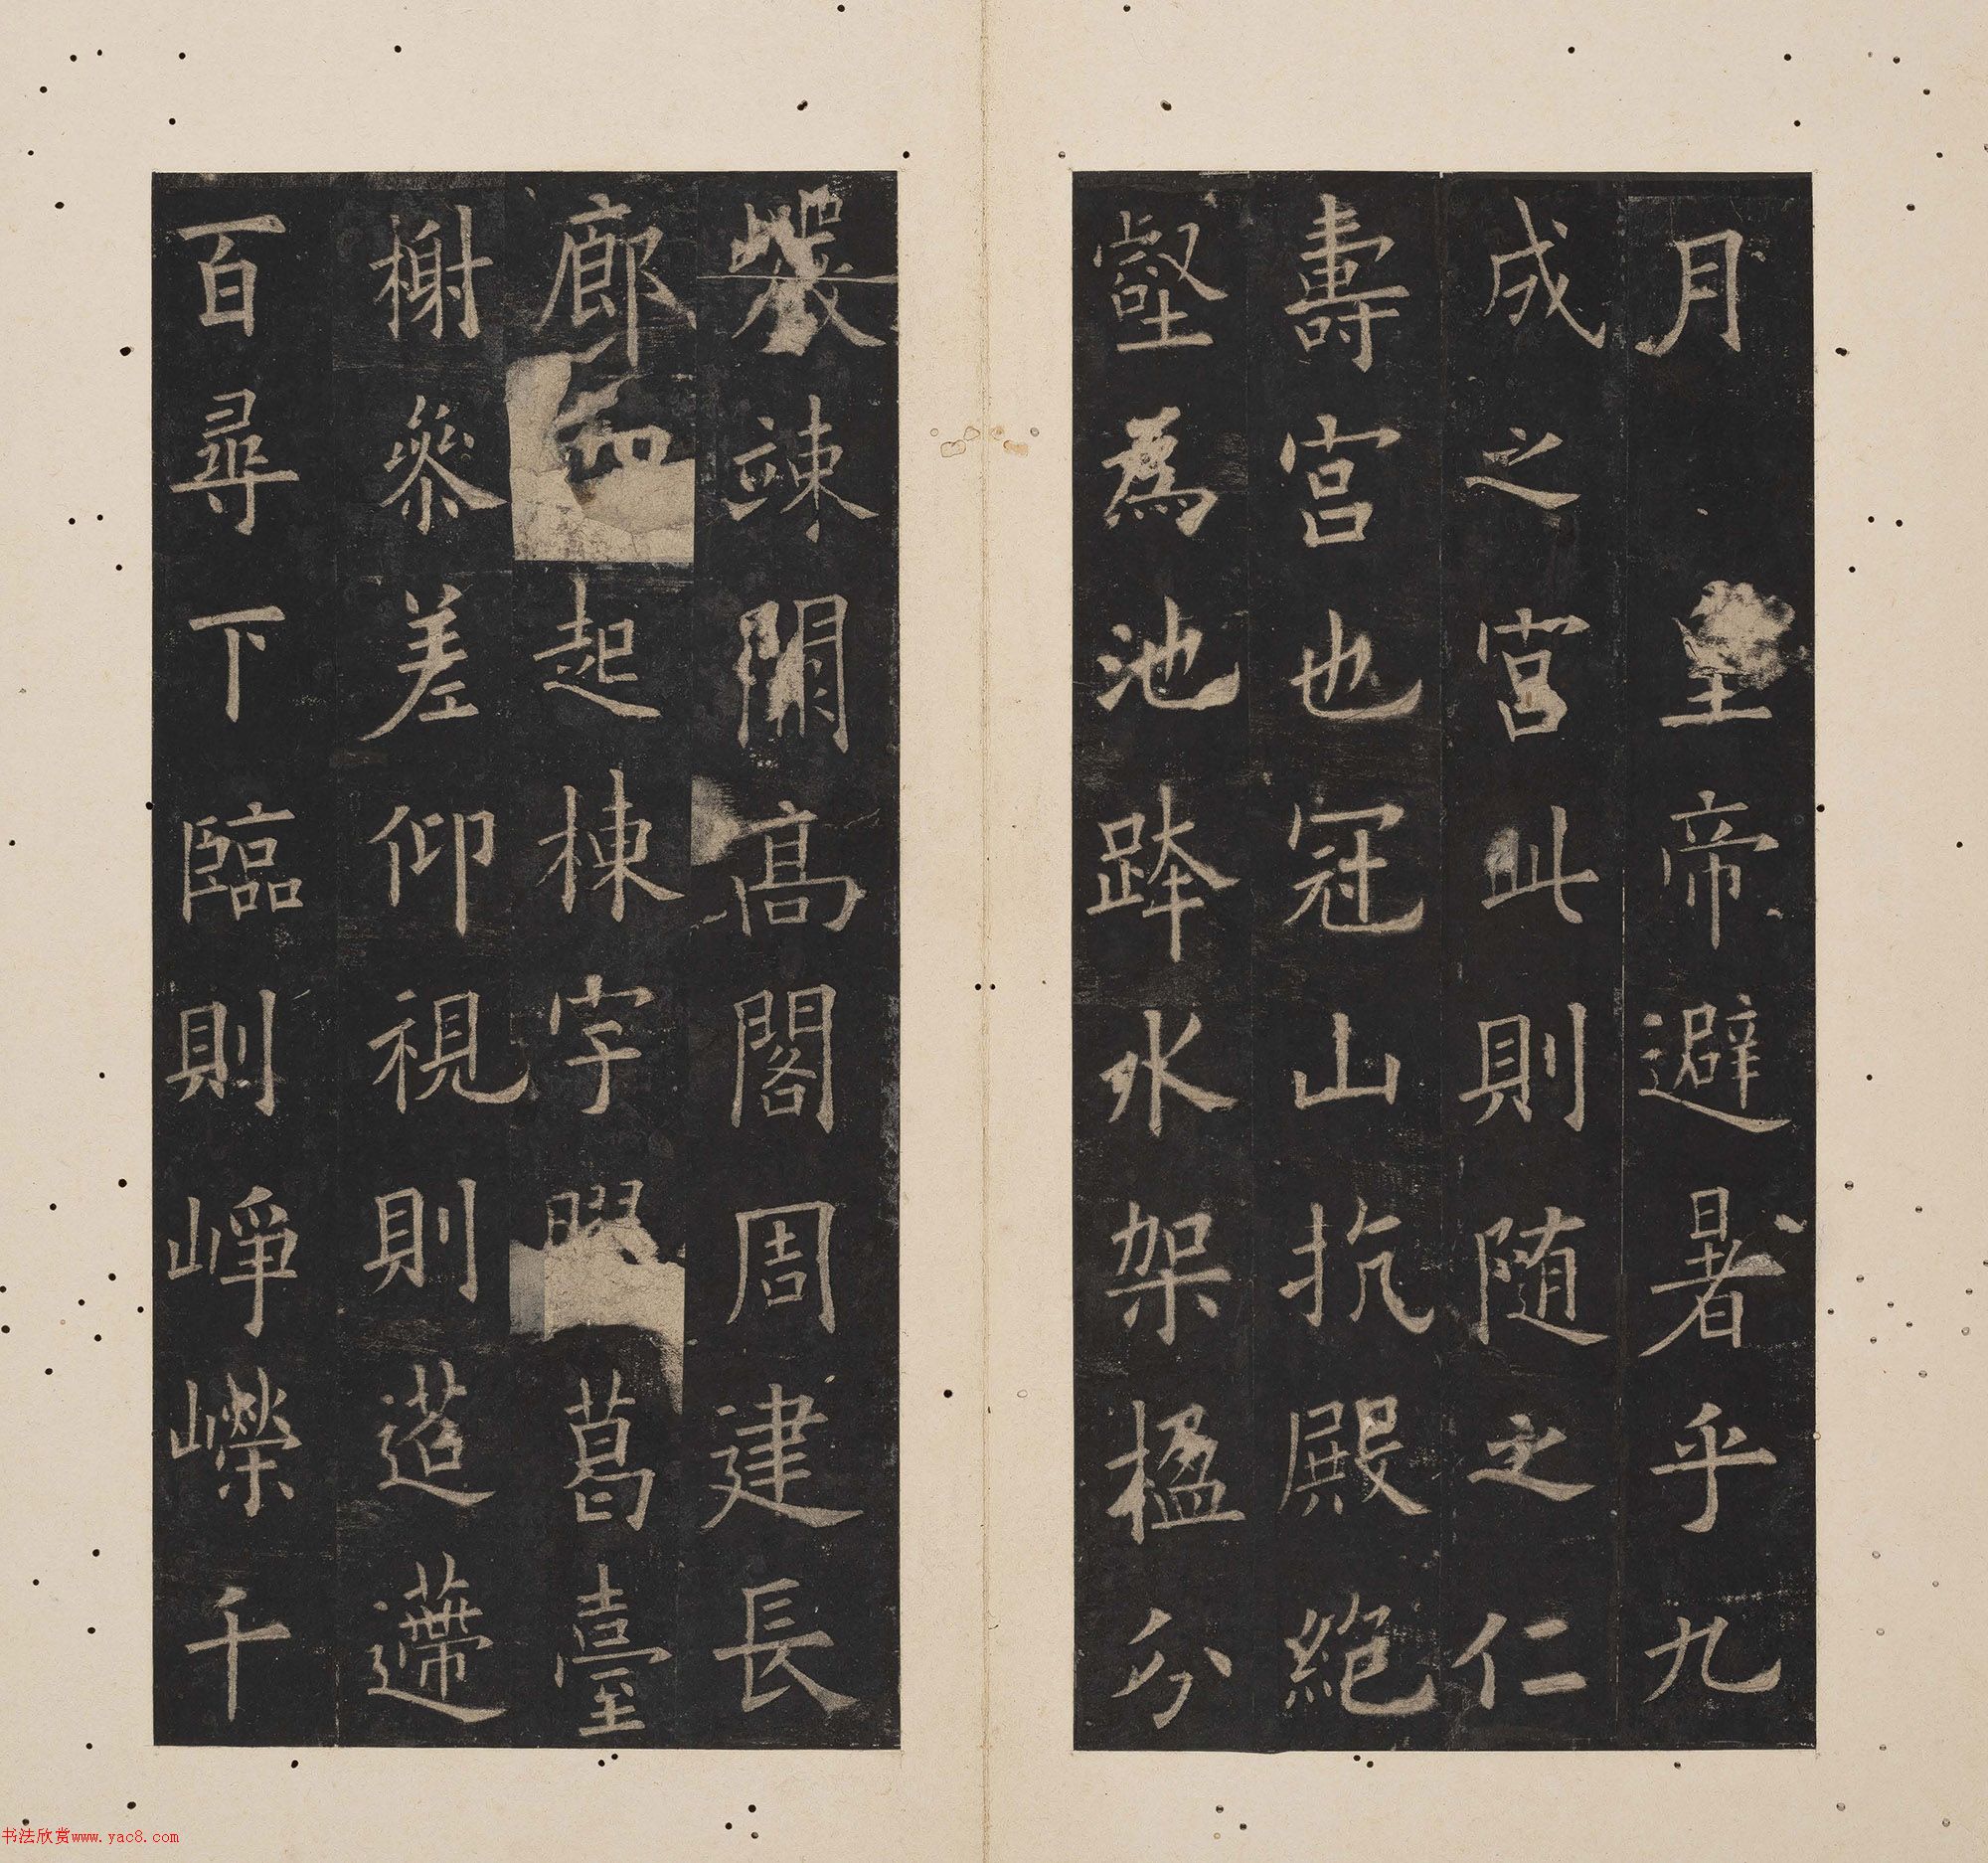 月皇帝避暑乎九
成之宮此則随之仁
壽宮也冠山抗殿絕
壑為池跨水架楹分
巖竦闕高閣周建長
廊四起棟宇膠葛臺
榭參差仰視則迢遰
百尋下臨則崢嶸千
书法欣赏www.yac8.com